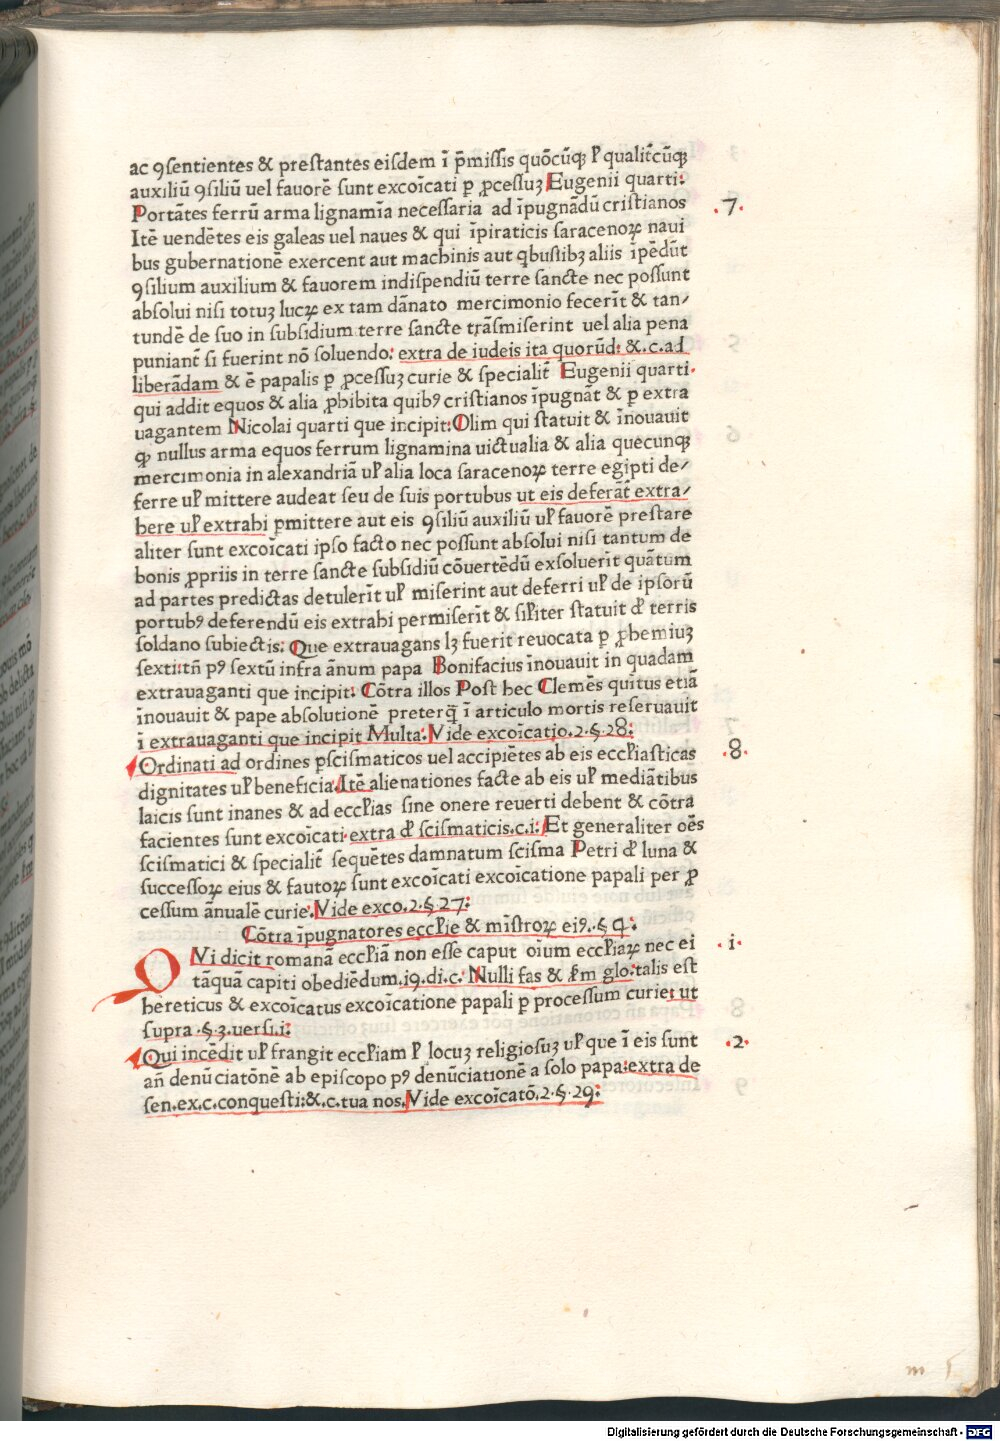 ac ꝯſentientes & preſtantes eiſdem ī p̄miſſis quōcūqꝫ ꝉ qualit̄cūqꝫ
auxiliū ꝯſiliū uel fauorē ſunt excoīcati ꝑ ꝓceſſuꝫ Eugenii quarti:
Portātes ferrū arma lignamīa neceſſaria ad īpugnādū criſtianos .7.
Itē uendētes eis galeas uel naues & qui īpiraticis ſaracenoꝝ naui
bus gubernationē exercent aut machinis aut qbuſtibꝫ aliis īpēdūt
ꝯſilium auxilium & fauorem indiſpendiū terre ſancte nec poſſunt
abſolui niſi totuꝫ lucꝝ ex tam dānato mercimonio fecerīt & tan/
tundē de ſuo in ſubſidium terre ſancte trāſmiſerint uel alia pena
puniant̄ ſi fuerint nō ſoluendo: extra de iudeis ita quorūd: &.c.ad
liberādam & ē papalis ꝑ ꝓceſſuꝫ curie & ſpecialit̄ Eugenii quarti.
qui addit equos & alia ꝓhibita quibꝰ criſtianos īpugnāt & ꝑ extra
uagantem Nicolai quarti que incipit: Olim qui ſtatuit & īnouauit
ꝙ nullus arma equos ferrum lignamina uictualia & alia quecunqꝫ
mercimonia in alexandriā uꝉ alia loca ſaracenoꝝ terre egipti de/
ferre uꝉ mittere audeat ſeu de ſuis portubus ut eis deferāt̄ extra/
here uꝉ extrahi ꝑmittere aut eis ꝯſiliū auxiliū uꝉ fauorē preſtare
aliter ſunt excoīcati ipſo facto nec poſſunt abſolui niſi tantum de
bonis ꝓpriis in terre ſancte ſubſidiū cōuertēdū exſoluerit quātum
ad partes predictas detulerīt uꝉ miſerint aut deferri uꝉ de ipſorū
portubꝰ deferendū eis extrahi permiſerīt & ſiꝉiter ſtatuit đ terris
ſoldano ſubiectis: Que extrauagans lꝫ fuerit reuocata ꝑ ꝓhemiuꝫ
ſexti:tn̄ pꝰ ſextū infra ānum papa Bonifacius īnouauit in quadam
extrauaganti que incipit: Cōtra illos Poſt hec Clemēs quītus etiā
īnouauit & pape abſolutionē preterq̄ ī articulo mortis reſeruauit
ī extrauaganti que incipit Multa: Vide excoīcatio.2.§.28:
Ordinati ad ordines ꝑſciſmaticos uel accipiētes ab eis eccꝉiaſticas .8.
dignitates uꝉ beneficia. Itē alienationes facte ab eis uꝉ mediātibus
laicis ſunt inanes & ad eccꝉias ſine onere reuerti debent & cōtra
facientes ſunt excoīcati.extra đ ſciſmaticis.c.i: Et generaliter oēs
ſciſmatici & ſpecialit̄ ſequētes damnatum ſciſma Petri đ luna &
ſucceſſoꝝ eius & fautoꝝ ſunt excoīcati excoīcatione papali per ꝓ
ceſſum ānualē curie. Vide exco.2.§.27:
Cōtra īpugnatores eccꝉie & mīſtroꝝ eiꝰ. §.4:
QVi dicit romanā eccꝉiā non eſſe caput oīum eccꝉiaꝝ nec ei .i.
tāquā capiti obediēdum.19.di.c: Nulli fas & ẜm glo:talis eſt
hereticus & excoīcatus excoīcatione papali ꝑ proceſſum curie: ut
ſupra .§.3.uerſi.i:
Qui incēdit uꝉ frangit eccꝉiam ꝉ locuꝫ religioſuꝫ uꝉ que ī eis ſunt .2.
an̄ denūciatōnē ab epiſcopo pꝰ denūciationē a ſolo papa:extra de
ſen.ex.c.conqueſti:&.c.tua nos. Vide excoīcatō.2.§.29:
m 5
Digitalisierung gefördert durch die Deutsche Forschungsgemeinschaft - DFG